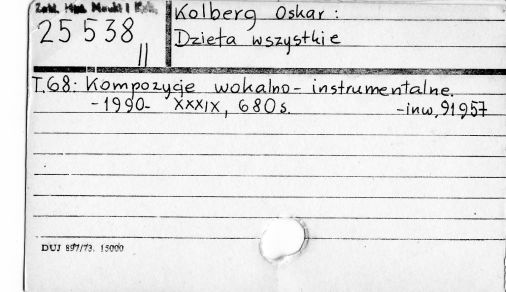 Zakł. Hist. Nauki i
25 538
II
Kolberg Oskar:
Dzieła wszystkie
T.68: Kompozycje wokalno-instrumentalne.
-1990- XXXIX, 680 s. -inw. 91957
DUJ 897/73. 15000